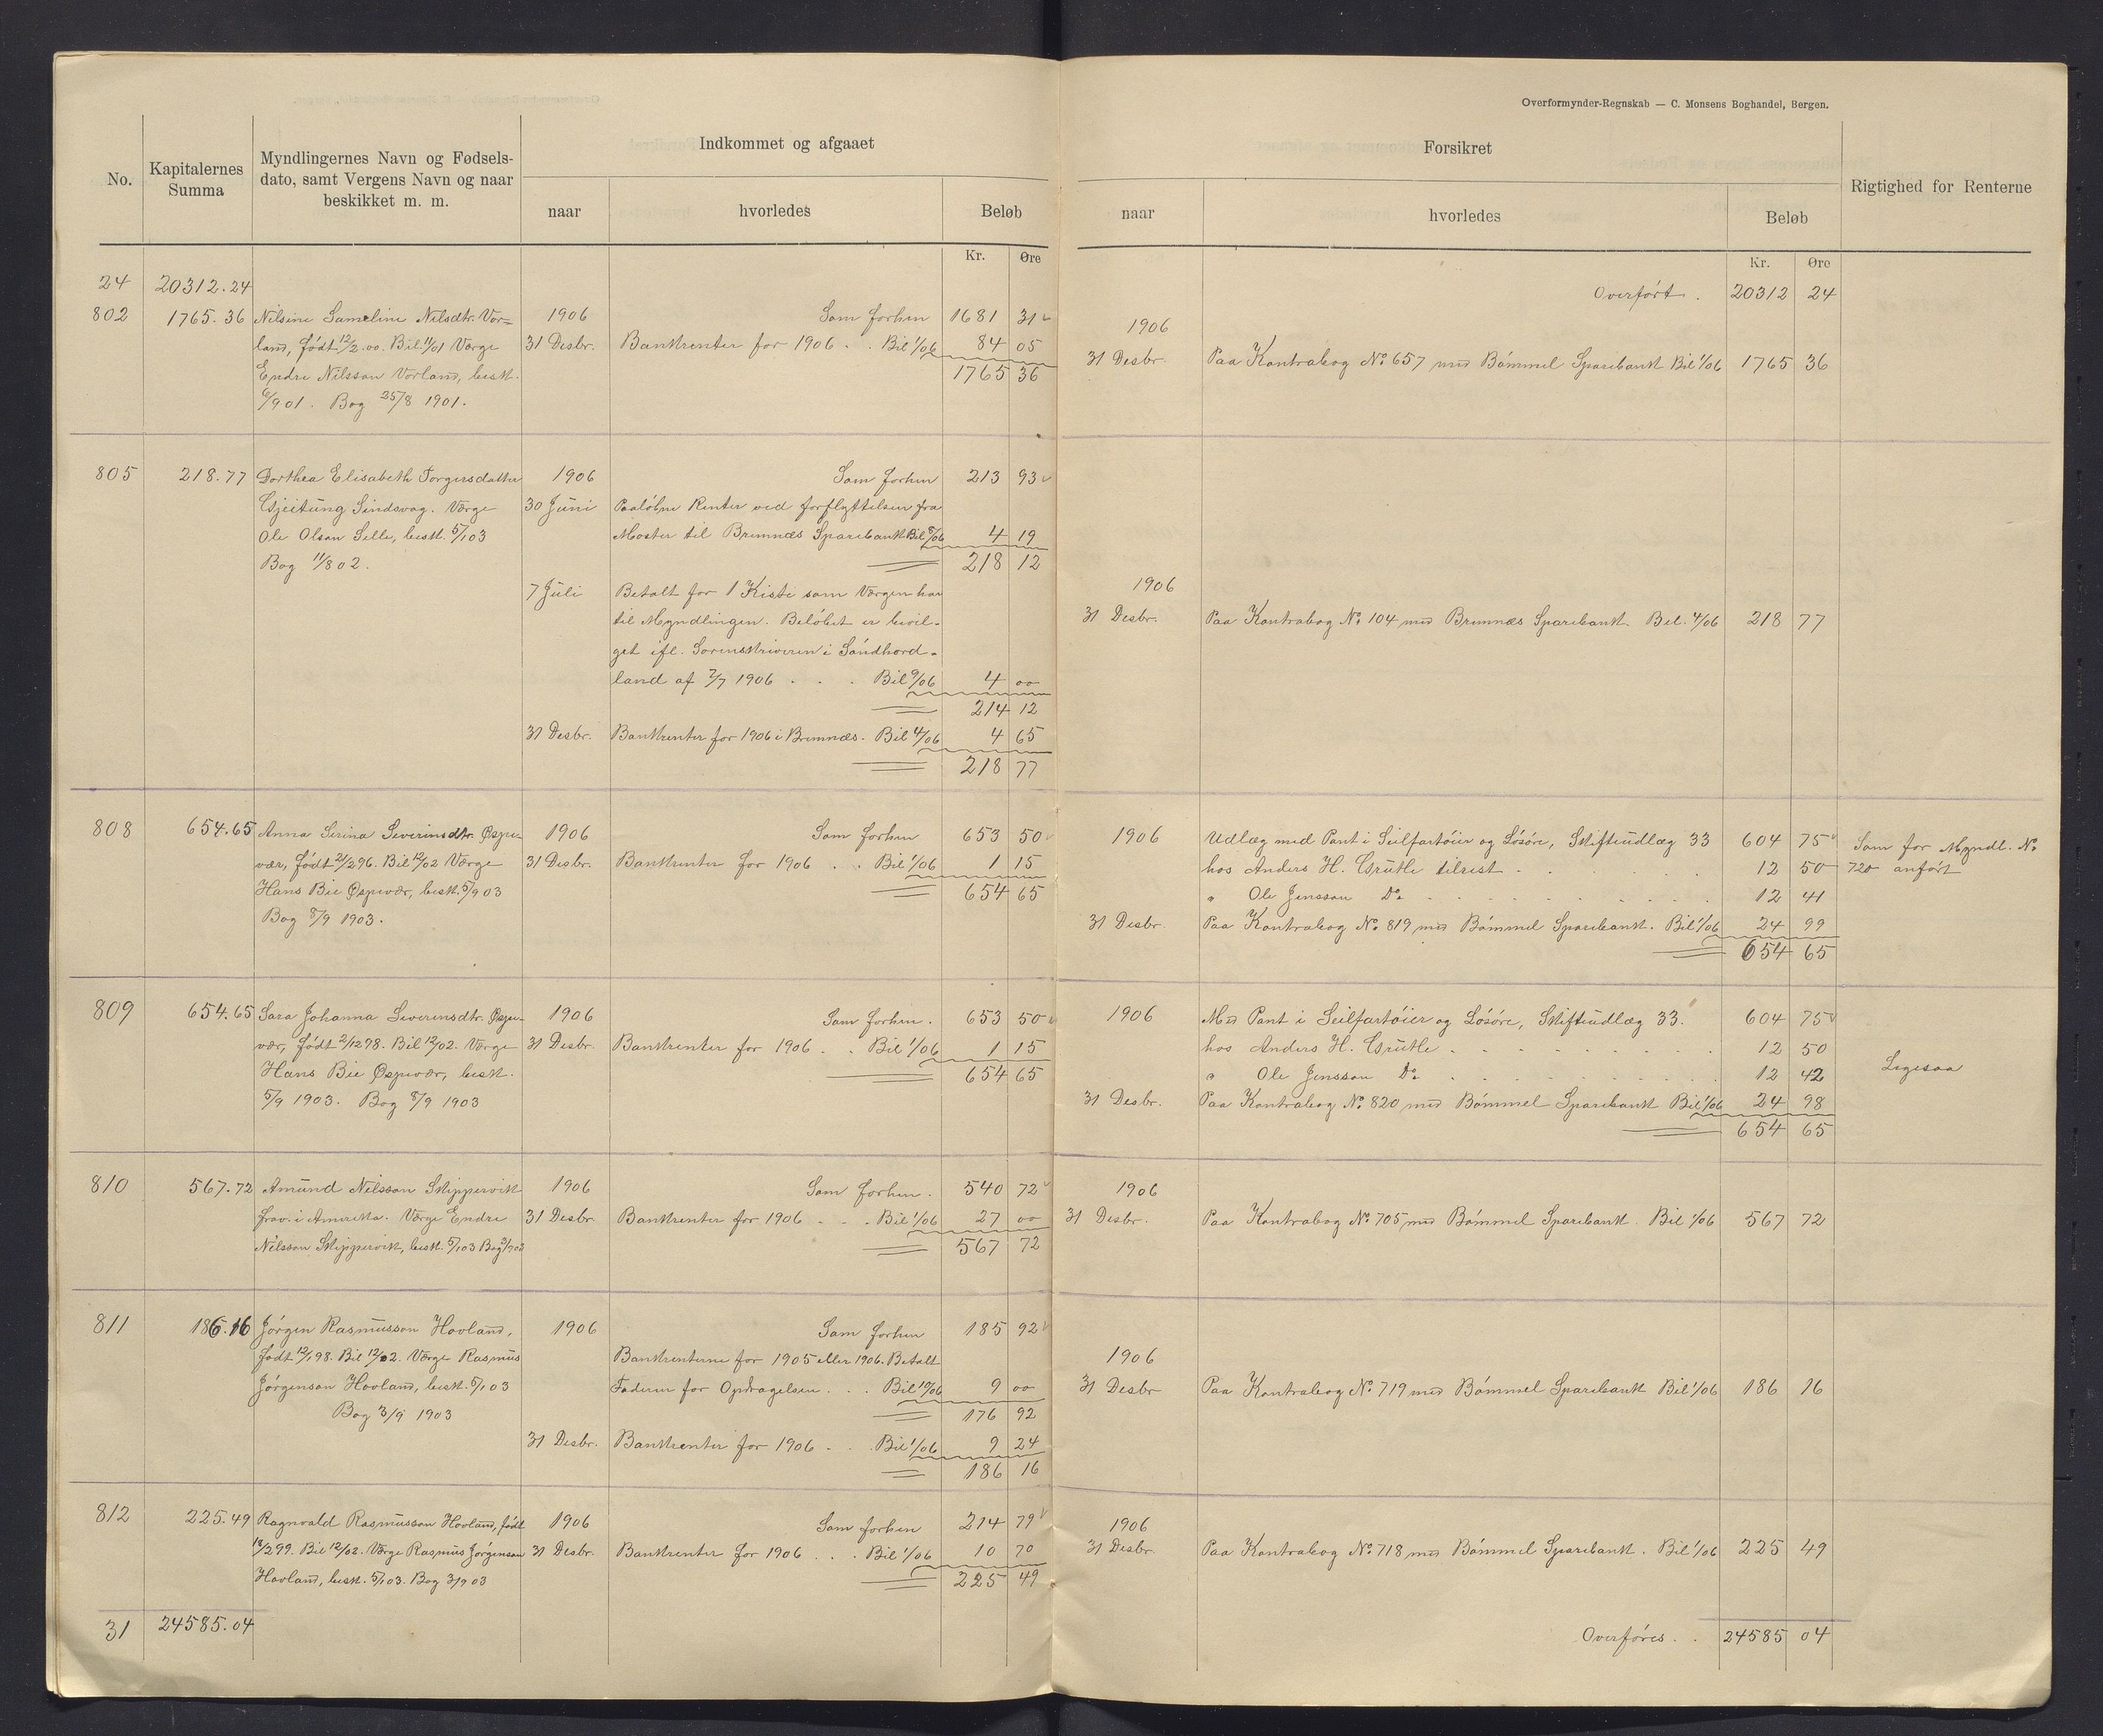 Overformynder-Regnskab — C. Monsens Boghandel, Bergen.
No.
Kapitalernes
Summa
Myndlingernes Navn og Fødsels-
dato, samt Vergens Navn og naar
beskikket m. m.
Indkommet og afgaaet
naar
hvorledes
Beløb
Kr. Øre
24 20312.24
802 1765.36 Nilsine Sameline Nilsdtr. Vor- 1906 Som forhen 1681 31
land, født 12/2.00. Bil 11/01 Værge 31 Desbr. Bankrenter for 1906 . . Bil 1/06 84 05
Endre Nilsson Vorland, besk. 1765 36
6/9 01. Bog 25/8 1901.
805 218.77 Dorthea Elisabeth Torgersdatter 1906 Som forhen 213 93
Gjeitung Lindsvag. Værge 30 Juni Paaløbne Renter ved forflyttelsen fra
Ole Olson Selle, besk. 5/1 03 Moster til Bremnæs Sparebank Bil 8/06 4 19
Bog 11/8 02. 218 12
7 Juli Betalt for 1 Kiste som Værgen har
til Myndlingen. Beløbet er bevil-
get ifl. Sorenskriveren i Søndhord-
land af 2/7 1906 . . . Bil 9/06 4 00
214 12
31 Desbr. Bankrenter for 1906 i Bremnæs. Bil 4/06 4 65
218 77
808 654.65 Anna Serina Severinsdtr. Øspe- 1906 Som forhen 653 50
vær, født 21/2 96. Bil 12/02 Værge 31 Desbr. Bankrenter for 1906 . . Bil 1/06 1 15
Hans Bie Øspevær, besk. 5/9 03 654 65
Bog 8/9 1903.
809 654.65 Sara Johanna Severinsdtr. Øspe- 1906 Som forhen. 653 50
vær, født 2/12 98. Bil 12/02. Værge 31 Desbr. Bankrenter for 1906 . . Bil 1/06 1 15
Hans Bie Øspevær, besk. 654 65
5/9 1903. Bog 8/9 1903
810 567.72 Amund Nilsson Skippervik 1906 Som forhen. 540 72
frav. i Amerika. Værge Endre 31 Desbr. Bankrenter for 1906 . . . Bil 1/06 27 00
Nilsson Skippervik, besk. 5/1 03 Bog 567 72
811 186.16 Jörgen Rasmusson Hovland, 1906 Som forhen 185 92
født 12/1 98. Bil 12/02. Værge Rasmus Bankrenterne for 1905 eller 1906. Betalt
Jörgenson Hovland, besk. 5/1 03 Faderen for Opdragelsen . . . Bil 10/06 9 00
Bog 3/9 1903 176 92
31 Desbr. Bankrenter for 1906 . . . Bil 1/06 9 24
186 16
812 225.49 Ragnvald Rasmusson Hovland, født 1906 Som forhen 214 79
12/2 99. Bil 12/02. Værge Rasmus Jørgenson 31 Desbr. Bankrenter for 1906 . . . Bil 1/06 10 70
Hovland, besk. 5/1 03. Bog 3/9 03 225 49
31 24585.04
Forsikret
Rigtighed for Renterne
naar
hvorledes
Beløb
Kr. Øre
Overført . 20312 24
1906
31 Desbr. Paa Kontrabog No 657 med Bömmel Sparebank Bil 1/06 1765 36
1906
31 Desbr. Paa Kontrabog No 104 med Bremnæs Sparebank. Bil. 4/06 218 77
1906 Udlæg med Pant i Seilfartöier og Lösöre, Skifteudlæg 33 604 75 Som for Myndl. No
hos Anders H. Grutle tilrest . . . 12 50 720 anført
" Ole Jensson Do . . . 12 41
31 Desbr. Paa Kontrabog No 819 med Bömmel Sparebank. Bil 1/06 24 99
654 65
1906 Med Pant i Seilfartöier og Lösöre, Skifteudlæg 33. 604 75
hos Anders H. Grutle . . . 12 50
" Ole Jensson Do . . . 12 42 Ligesaa
31 Desbr. Paa Kontrabog No 820 med Bömmel Sparebank Bil 1/06 24 98
654 65
1906
31 Desbr. Paa Kontrabog No 705 med Bömmel Sparebank. Bil 1/06 567 72
1906
31 Desbr Paa Kontrabog No 719 med Bömmel Sparebank Bil 1/06 186 16
1906
31 Desbr. Paa Kontrabog No 718 med Bömmel Sparebank. Bil 1/06 225 49
Overføres . . 24585 04